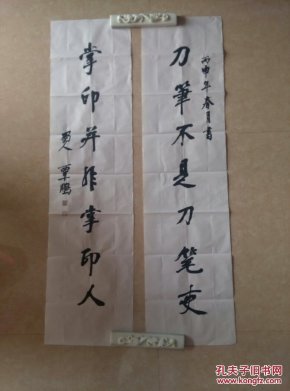 丙申年春月書
刀筆不是刀筆吏
掌印并非掌印人
覃鵬
孔夫子旧书网